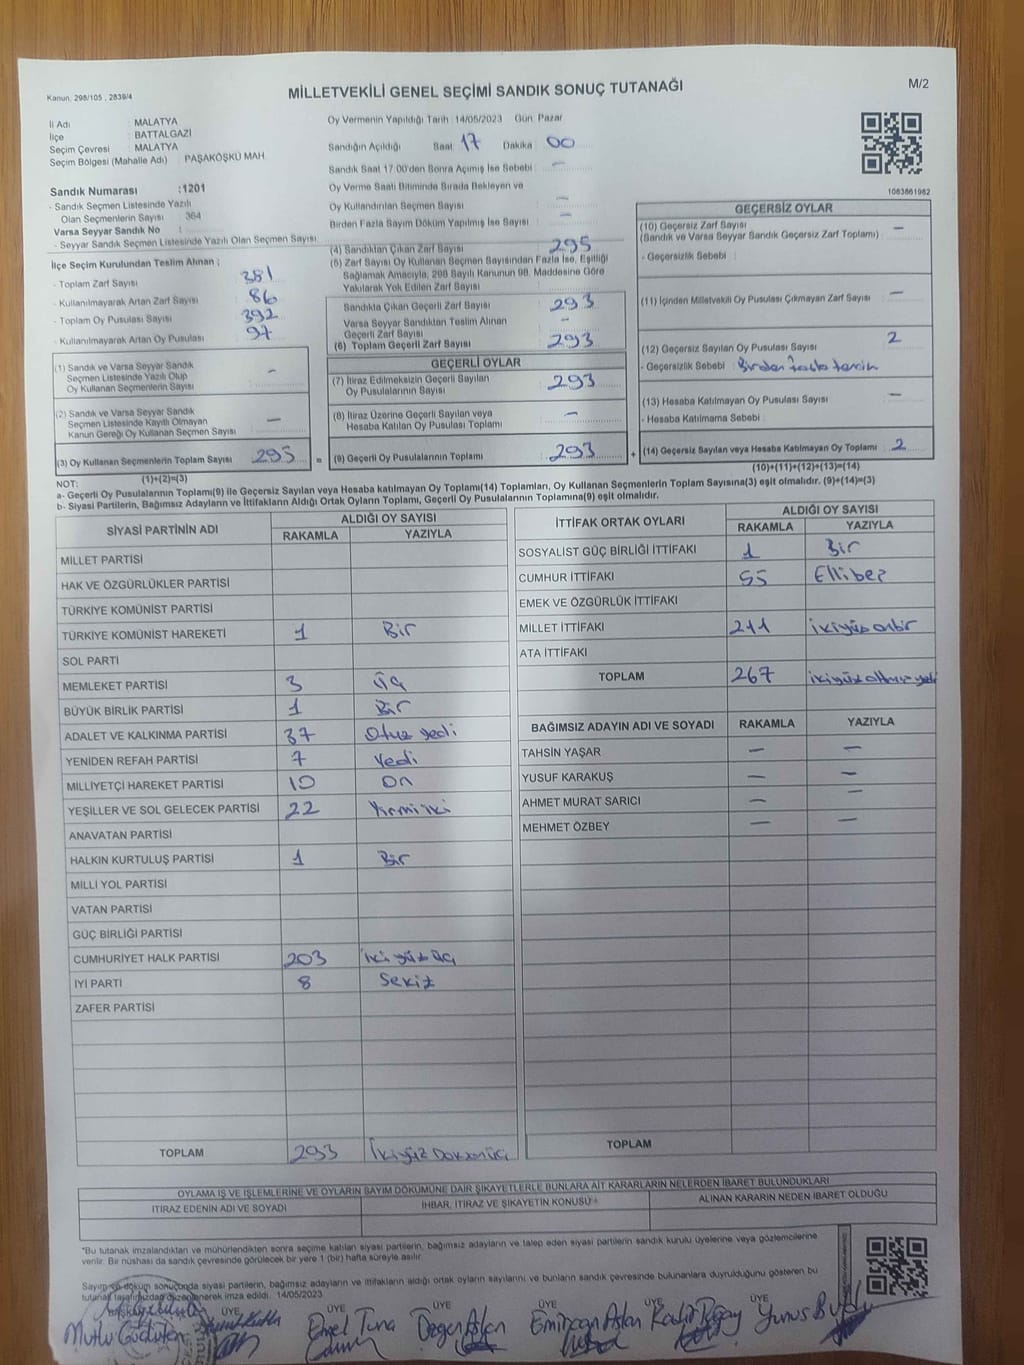 Kanun, 298/105 , 2839/4
MİLLETVEKİLİ GENEL SEÇİMİ SANDIK SONUÇ TUTANAĞI
M/2
İl Adı : MALATYA
İlçe : BATTALGAZİ
Seçim Çevresi : MALATYA
Seçim Bölgesi (Mahalle Adı) : PAŞAKÖŞKÜ MAH
Sandık Numarası :1201
- Sandık Seçmen Listesinde Yazılı
Olan Seçmenlerin Sayısı : 364
Varsa Seyyar Sandık No :
- Seyyar Sandık Seçmen Listesinde Yazılı Olan Seçmen Sayısı:
İlçe Seçim Kurulundan Teslim Alınan ;
- Toplam Zarf Sayısı : 381
- Kullanılmayarak Artan Zarf Sayısı : 86
- Toplam Oy Pusulası Sayısı : 392
- Kullanılmayarak Artan Oy Pusulası : 97
(1) Sandık ve Varsa Seyyar Sandık
Seçmen Listesinde Yazılı Olup
Oy Kullanan Seçmenlerin Sayısı : -
(2) Sandık ve Varsa Seyyar Sandık
Seçmen Listesinde Kayıtlı Olmayan
Kanun Gereği Oy Kullanan Seçmen Sayısı : -
(3) Oy Kullanan Seçmenlerin Toplam Sayısı : 295
(1)+(2)=(3)
Oy Vermenin Yapıldığı Tarih : 14/05/2023 Gün: Pazar
Sandığın Açıldığı Saat 17 Dakika 00
Sandık Saat 17.00'den Sonra Açımış İse Sebebi : -
Oy Verme Saati Bitiminde Sırada Bekleyen ve
Oy Kullandırılan Seçmen Sayısı : -
Birden Fazla Sayım Döküm Yapılmış İse Sayısı : -
(4) Sandıktan Çıkan Zarf Sayısı : 295
(5) Zarf Sayısı Oy Kullanan Seçmen Sayısından Fazla İse, Eşitliği
Sağlamak Amacıyla, 298 Sayılı Kanunun 98. Maddesine Göre
Yakılarak Yok Edilen Zarf Sayısı :
Sandıkta Çıkan Geçerli Zarf Sayısı : 293
Varsa Seyyar Sandıktan Teslim Alınan
Geçerli Zarf Sayısı : -
(6) Toplam Geçerli Zarf Sayısı : 293
GEÇERLİ OYLAR
(7) İtiraz Edilmeksizin Geçerli Sayılan
Oy Pusulalarının Sayısı : 293
(8) İtiraz Üzerine Geçerli Sayılan veya
Hesaba Katılan Oy Pusulası Toplamı : -
= (9) Geçerli Oy Pusulalarının Toplamı : 293
1083861982
GEÇERSİZ OYLAR
(10) Geçersiz Zarf Sayısı
(Sandık ve Varsa Seyyar Sandık Geçersiz Zarf Toplamı) : -
- Geçersizlik Sebebi :
(11) İçinden Milletvekili Oy Pusulası Çıkmayan Zarf Sayısı : -
(12) Geçersiz Sayılan Oy Pusulası Sayısı : 2
- Geçersizlik Sebebi : Birden fazla tercih
(13) Hesaba Katılmayan Oy Pusulası Sayısı : -
- Hesaba Katılmama Sebebi :
+ (14) Geçersiz Sayılan veya Hesaba Katılmayan Oy Toplamı : 2
(10)+(11)+(12)+(13)=(14)
NOT:
a- Geçerli Oy Pusulalarının Toplamı(9) ile Geçersiz Sayılan veya Hesaba katılmayan Oy Toplamı(14) Toplamları, Oy Kullanan Seçmenlerin Toplam Sayısına(3) eşit olmalıdır. (9)+(14)=(3)
b- Siyasi Partilerin, Bağımsız Adayların ve İttifakların Aldığı Ortak Oyların Toplamı, Geçerli Oy Pusulalarının Toplamına(9) eşit olmalıdır.
SİYASİ PARTİNİN ADI ALDIĞI OY SAYISI
RAKAMLA YAZIYLA
MİLLET PARTİSİ
HAK VE ÖZGÜRLÜKLER PARTİSİ
TÜRKİYE KOMÜNİST PARTİSİ
TÜRKİYE KOMÜNİST HAREKETİ 1 Bir
SOL PARTİ
MEMLEKET PARTİSİ 3 Üç
BÜYÜK BİRLİK PARTİSİ 1 Bir
ADALET VE KALKINMA PARTİSİ 37 Otuz yedi
YENİDEN REFAH PARTİSİ 7 Yedi
MİLLİYETÇİ HAREKET PARTİSİ 10 On
YEŞİLLER VE SOL GELECEK PARTİSİ 22 Yirmi iki
ANAVATAN PARTİSİ
HALKIN KURTULUŞ PARTİSİ 1 Bir
MİLLİ YOL PARTİSİ
VATAN PARTİSİ
GÜÇ BİRLİĞİ PARTİSİ
CUMHURİYET HALK PARTİSİ 203 İki yüz üç
İYİ PARTİ 8 Sekiz
ZAFER PARTİSİ
TOPLAM 293 İkiyüz Doksanüç
İTTİFAK ORTAK OYLARI ALDIĞI OY SAYISI
RAKAMLA YAZIYLA
SOSYALİST GÜÇ BİRLİĞİ İTTİFAKI 1 Bir
CUMHUR İTTİFAKI 55 Ellibeş
EMEK VE ÖZGÜRLÜK İTTİFAKI
MİLLET İTTİFAKI 211 ikiyüz onbir
ATA İTTİFAKI
TOPLAM 267 ikiyüz altmış yedi
BAĞIMSIZ ADAYIN ADI VE SOYADI RAKAMLA YAZIYLA
TAHSİN YAŞAR - -
YUSUF KARAKUŞ - -
AHMET MURAT SARICI - -
MEHMET ÖZBEY - -
TOPLAM
OYLAMA İŞ VE İŞLEMLERİNE VE OYLARIN SAYIM DÖKÜMÜNE DAİR ŞİKAYETLERLE BUNLARA AİT KARARLARIN NELERDEN İBARET BULUNDUKLARI
İTİRAZ EDENİN ADI VE SOYADI İHBAR, İTİRAZ VE ŞİKAYETİN KONUSU * ALINAN KARARIN NEDEN İBARET OLDUĞU
*Bu tutanak imzalandıktan ve mühürlendikten sonra seçime katılan siyasi partilerin, bağımsız adayların ve talep eden siyasi partilerin sandık kurulu üyelerine veya gözlemcilerine
verilir. Bir nüshası da sandık çevresinde görülecek bir yere 1 (bir) hafta süreyle asılır.
Sayım ve döküm sonucunda siyasi partilerin, bağımsız adayların ve ittifakların aldığı ortak oyların sayılarını ve bunların sandık çevresinde bulunanlara duyrulduğunu gösteren bu
tutanak tarafımızdan düzenlenerek imza edildi. 14/05/2023
ÜYE ÜYE ÜYE ÜYE ÜYE ÜYE
Mutlu Emel Tuna Özgen Aslan Emincan Aslan Kadir Yunus